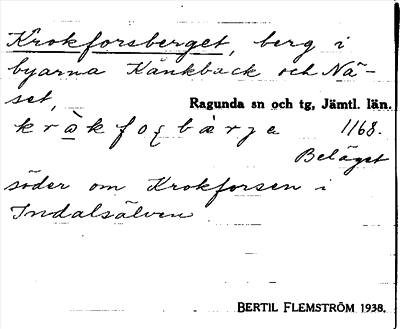 Krokforsberget, berg i
byarna Kånkback och Nä-
set, Ragunda sn och tg, Jämtl. län.
1168.
Beläget
söder om Krokforsen i
Indalsälven
BERTIL FLEMSTRÖM 1938.